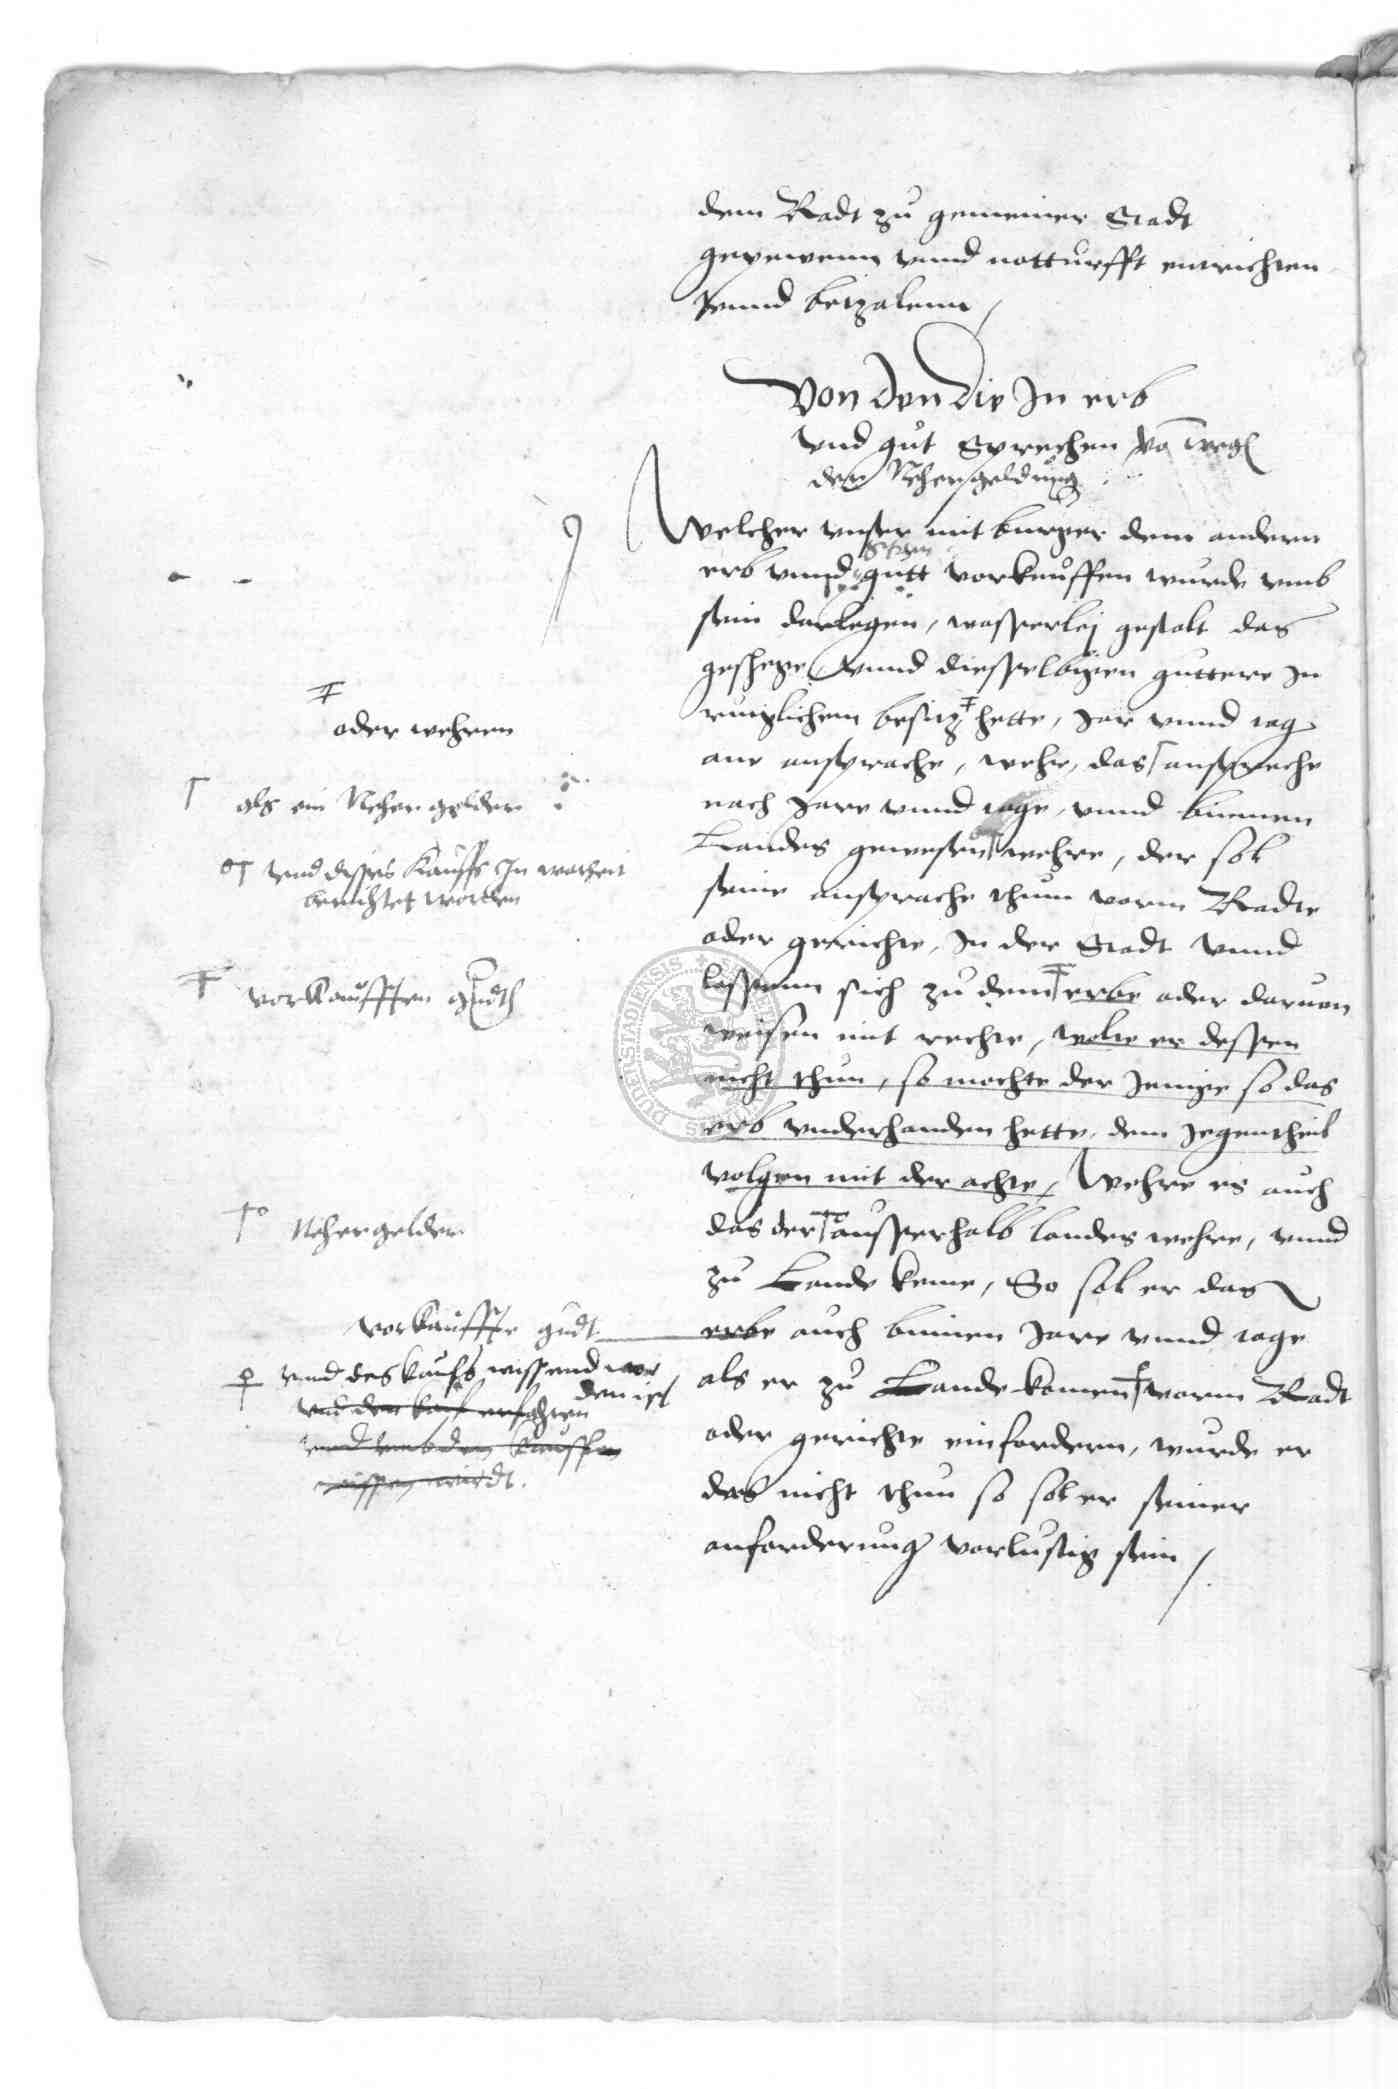 dem Radt zu gemeiner Stadt
gepewenn vnnd notturfft entrichten
vnnd betzalenn /
Von den die In erb
vnd gut Sprechen von weg
der Nehergeldung
Welcher vnser mit burger dem andern
erb vnnd gutt vorkeuffen wurde vmb
sein darlegen, wasserlej gestalt das
geschege vnnd diesselbigen guttere In
ruiglichem besitz hette, Jar vnnd tag
ane ansprache, wehr, das ansprache
nach Jare vnnd tage, vnnd binnen
Landes gewesen wehre, der sol
seine ansprache thun vorm Radte
oder gerichte, In der Stadt vnnd
lassenn sich zu dem erbe oder daruon
weisen mit rechte, wolte er dessen
nicht thun, so mochte der Jenige so das
erb vnderhanden hette, dem Jegentheil
volgen mit der achte, Wehre es auch
das der ausserhalb landes wehre, vnnd
zu Lande keme, So sol er das
erbe auch binnen Jare vnnd tage
als er zu Lande komen vorm Radt
oder gerichte einfordern, wurde er
das nicht thun so sol er seiner
anforderung vorlustig sein /
oder wehren
als ein Neher gelder
vnd dises Kauffs In warheit
berichtet worden
vorkaufften gudt
Nehergelder
vorkauffte gudt
vnd des kaufs wissend wor
den ist
vnd den kauf erfahren
vnd vmb den Kauff
wissen wirdt.
DUDERSTADIENSIS